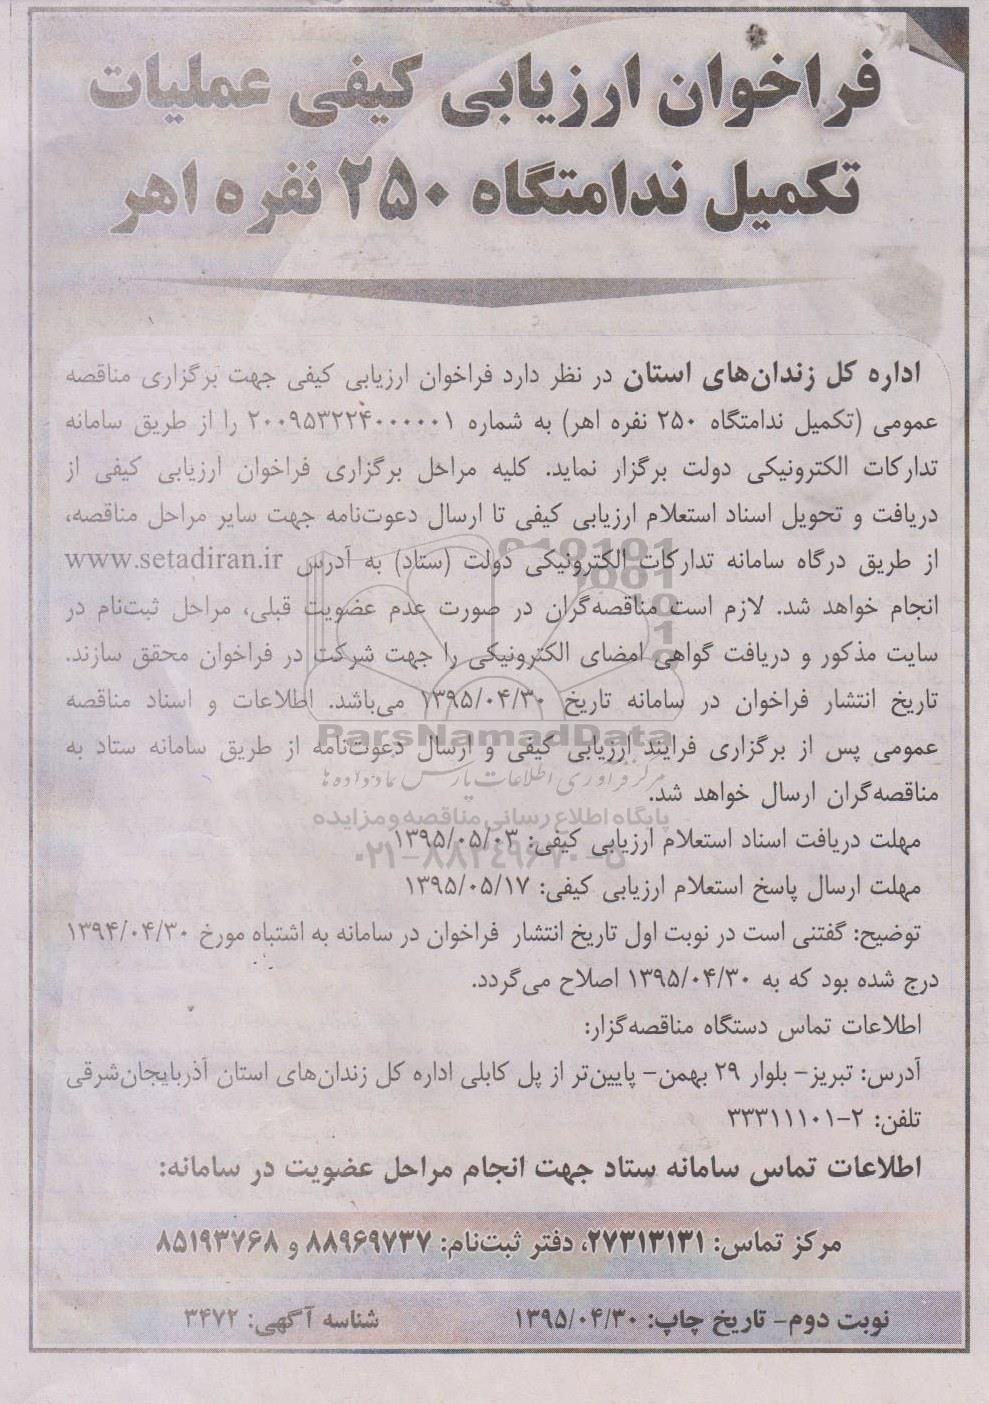 فراخوان ارزیابی کیفی عملیات
تکمیل ندامتگاه ۲۵۰ نفره اهر
اداره کل زندان‌های استان در نظر دارد فراخوان ارزیابی کیفی جهت برگزاری مناقصه
عمومی (تکمیل ندامتگاه ۲۵۰ نفره اهر) به شماره ۲۰۰۹۵۳۲۲۴۰۰۰۰۰۱ را از طریق سامانه
تدارکات الکترونیکی دولت برگزار نماید. کلیه مراحل برگزاری فراخوان ارزیابی کیفی از
دریافت و تحویل اسناد استعلام ارزیابی کیفی تا ارسال دعوت‌نامه جهت سایر مراحل مناقصه،
از طریق درگاه سامانه تدارکات الکترونیکی دولت (ستاد) به آدرس www.setadiran.ir
انجام خواهد شد. لازم است مناقصه‌گران در صورت عدم عضویت قبلی، مراحل ثبت‌نام در
سایت مذکور و دریافت گواهی امضای الکترونیکی را جهت شرکت در فراخوان محقق سازند.
تاریخ انتشار فراخوان در سامانه تاریخ ۱۳۹۵/۰۴/۳۰ می‌باشد. اطلاعات و اسناد مناقصه
عمومی پس از برگزاری فرایند ارزیابی کیفی و ارسال دعوت‌نامه از طریق سامانه ستاد به
مناقصه‌گران ارسال خواهد شد.
مهلت دریافت اسناد استعلام ارزیابی کیفی: ۱۳۹۵/۰۵/۰۳
مهلت ارسال پاسخ استعلام ارزیابی کیفی: ۱۳۹۵/۰۵/۱۷
توضیح: گفتنی است در نوبت اول تاریخ انتشار فراخوان در سامانه به اشتباه مورخ ۱۳۹۴/۰۴/۳۰
درج شده بود که به ۱۳۹۵/۰۴/۳۰ اصلاح می‌گردد.
اطلاعات تماس دستگاه مناقصه‌گزار:
آدرس: تبریز- بلوار ۲۹ بهمن- پایین‌تر از پل کابلی اداره کل زندان‌های استان آذربایجان‌شرقی
تلفن: ۲-۳۳۳۱۱۱۰۱
اطلاعات تماس سامانه ستاد جهت انجام مراحل عضویت در سامانه:
مرکز تماس: ۲۷۳۱۳۱۳۱، دفتر ثبت‌نام: ۸۸۹۶۹۷۳۷ و ۸۵۱۹۳۷۶۸
نوبت دوم- تاریخ چاپ: ۱۳۹۵/۰۴/۳۰ شناسه آگهی: ۳۴۷۲
ParsNamadData
مرکز فرآوری اطلاعات پارس نماد داده‌ها
پایگاه اطلاع رسانی مناقصه و مزایده
۰۲۱-۸۸۳۴۹۶۷۰-۵